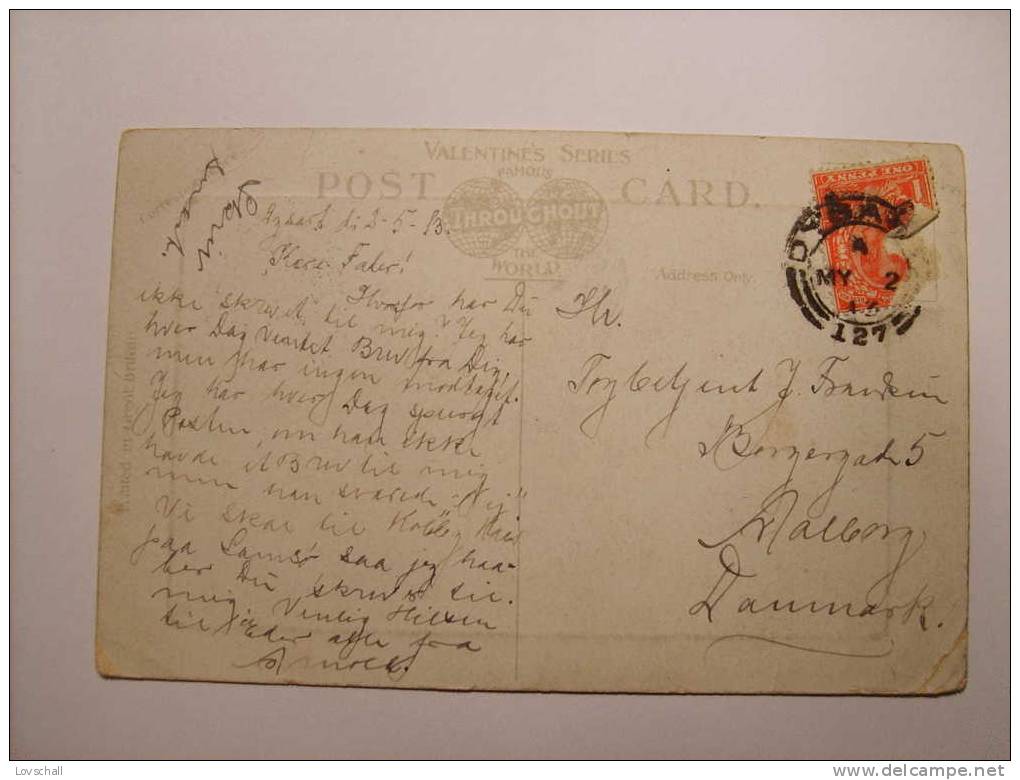 VALENTINE'S SERIES
FAMOUS
THROUGHOUT
THE
WORLD
POST CARD.
Address Only.
Printed in Great Britain
ONE PENNY
DYSART
A
MY 2
13
127
Dysart d. 2-5-13.
Kære Fader!
Hvorfor har Du
ikke skrevet til mig? Jeg har
hver Dag ventet Brev fra Dig,
men har ingen modtaget.
Jeg har hver Dag spurgt
Posten, om han ikke
havde et Brev til mig
men han svarede "Nej".
Vi skal til Kolby Kaas
paa Samsø saa jeg haa-
ber Du skriver til
mig. Venlig Hilsen
til Eder alle fra
Arnold.
Skriv
snart.
Hr.
Togbetjent J. Frandsen
Borgergade 5
Aalborg
Danmark.
Lovschall